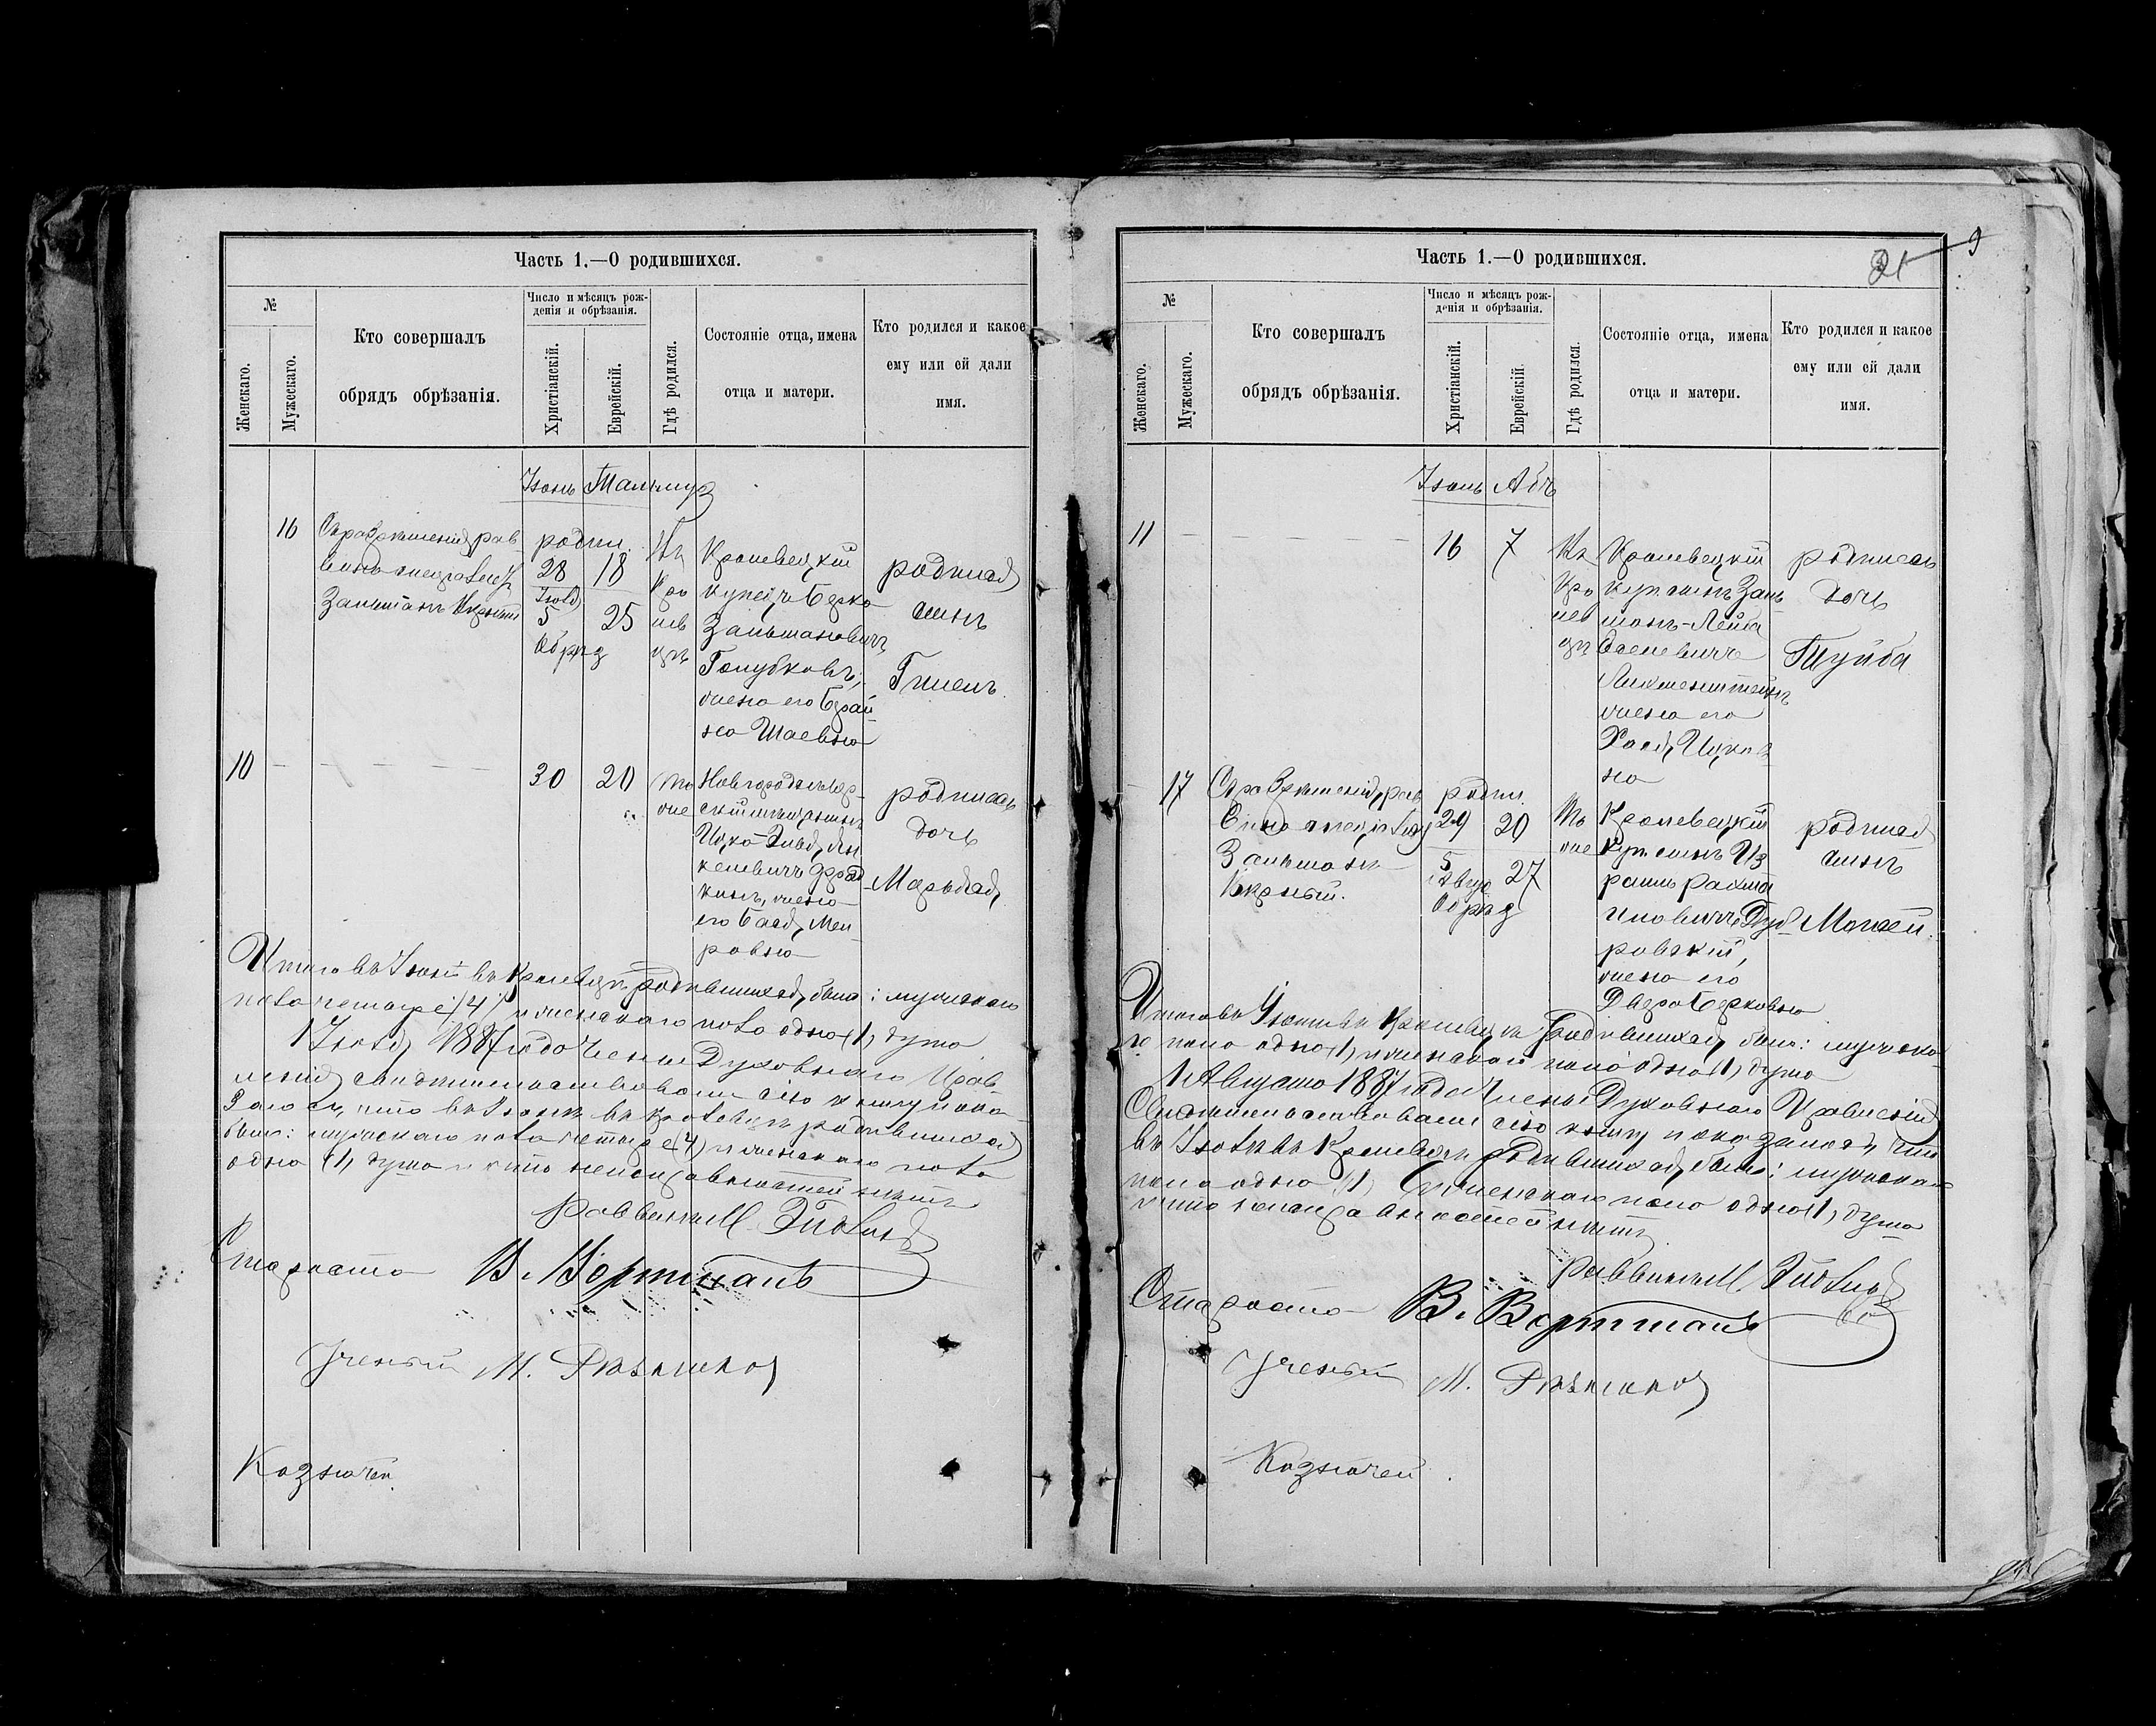 Часть 1.—О родившихся.
№
Женскаго.
Мужескаго.
Кто совершалъ
обрядъ обрѣзанія.
Число и мѣсяцъ рож-
денія и обрѣзанія.
Христіанскій.
Еврейскій.
Гдѣ родился.
Состояніе отца, имена
отца и матери.
Кто родился и какое
ему или ей дали
имя.
Іюнь Тамузъ
16
Съ разрѣшенія рав-
вина
Зальманъ
родил.
28 18
Іюля
5 25
обрѣз
Въ
Кро
лев
цѣ
Кролевецкій
купецъ Берко
Зальмановичъ
Голубковъ,
жена его Брай-
на Шаевна
родился
сынъ
Гилель
10
— — — — —
30 20
То
же
Новгородсѣвер-
скій мѣщанинъ
Ицко
кель,
жена
его Бася Меи-
ровна
родилась
дочь
Марьяся
Итого въ Іюнѣ въ Кролевцѣ родившихся было: мужескаго
пола четыре (4) и женскаго пола одна (1) душа
1 Іюля 1887 года Члены Духовнаго Прав-
ленія свидѣтельствовали сію книгу и ока-
залось, что въ Іюнѣ въ Кролевцѣ родившихся
было: мужескаго пола четыре (4) и женскаго пола
одна (1) душа и что неисправностей нѣтъ
Раввинъ М.
Староста В. Вортманъ
Ученый М.
Казначей.
Часть 1.—О родившихся.
21 9
№
Женскаго.
Мужескаго.
Кто совершалъ
обрядъ обрѣзанія.
Число и мѣсяцъ рож-
денія и обрѣзанія.
Христіанскій.
Еврейскій.
Гдѣ родился.
Состояніе отца, имена
отца и матери.
Кто родился и какое
ему или ей дали
имя.
Іюль Абъ
11
— — — — —
16 7
Въ
Кро
лев
цѣ
Кролевецкій
мѣщанинъ Заль
манъ-Лейба
Лихтенштейнъ
жена его
Хася Ицков-
на
родилась
дочь
Тайба
17
Съ разрѣшенія рав-
вина
Зальманъ
родил.
29 20
5 27
Август
обрѣз
То
же
Кролевецкій
мѣщанинъ Из
раиль Рахми
новичъ Дуб-
ровскій,
жена его
Двера Берковна
родился
сынъ
Мойсей.
Итого въ Іюлѣ въ Кролевцѣ родившихся было: мужеска-
го пола одна (1) и женскаго пола одна (1) душа
1 Августа 1887 года Члены Духовнаго Правленія
свидѣтельствовали сію книгу и оказалось, что
въ Іюлѣ въ Кролевцѣ родившихся было: мужескаго
пола одна (1) и женскаго пола одна (1) душа
и что неисправностей нѣтъ
Раввинъ М.
Староста В. Вортманъ
Ученый М.
Казначей